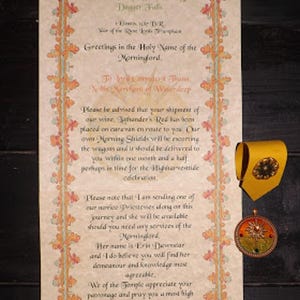 Dagger Falls
Year of the Rune Lords Triumphant
Greetings in the Holy Name of the
Morninglord.
To
Noble Merchant of Waterdeep
Please be advised that your shipment of
our wine, Lathander's Red has been
placed on caravan en route to you. Our
own Morning Shields will be escorting
the wagons and it should be delivered to
you within one month and a half
perhaps in time for the Highharvestide
celebration.
Please note that I am sending one of
our novice Priestesses along on this
journey and she will be available
should you need any services of the
Morninglord.
Her name is Erin
and I do believe you will find her
demeanour and knowledge most
agreeable.
We of the Temple appreciate your
patronage and pray you a most high